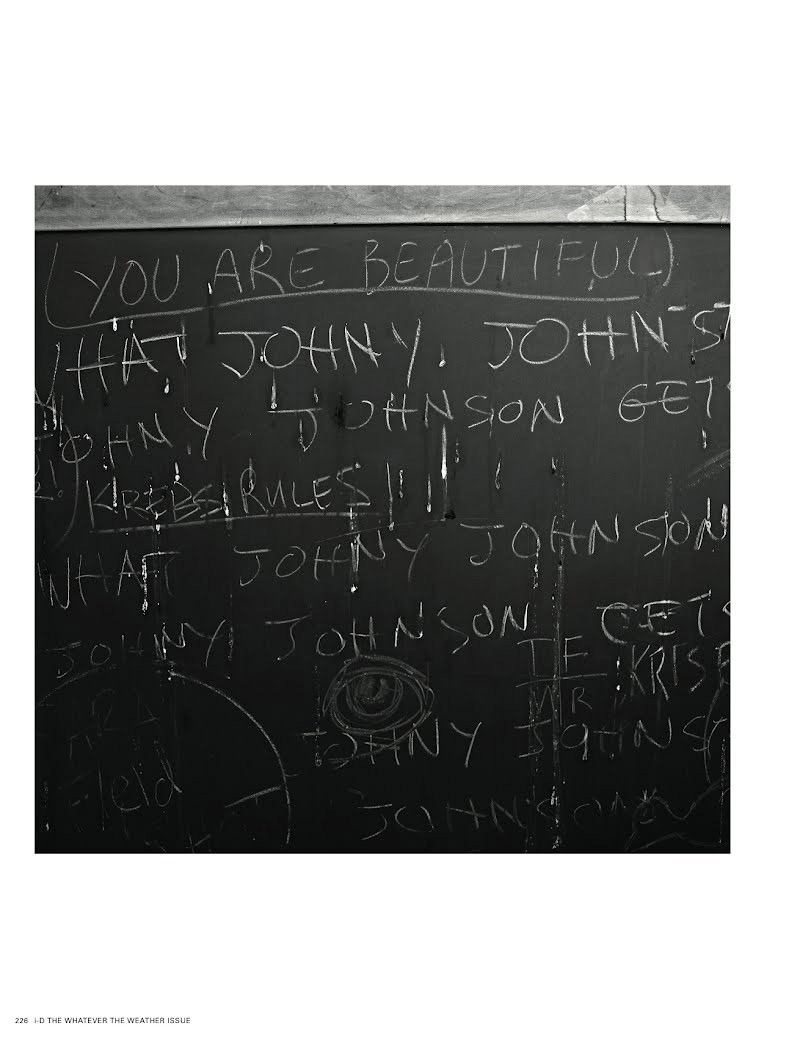 (YOU ARE BEAUTIFUL)
WHAT JOHNY. JOHNS
JOHNY JOHNSON GETS
KREBS RULES!!!
WHAT JOHNY JOHNSON
JOHNY JOHNSON GETS
IF KRIS
MR
JOHNY JOHNS
Field
JOHNSON
226 i-D THE WHATEVER THE WEATHER ISSUE